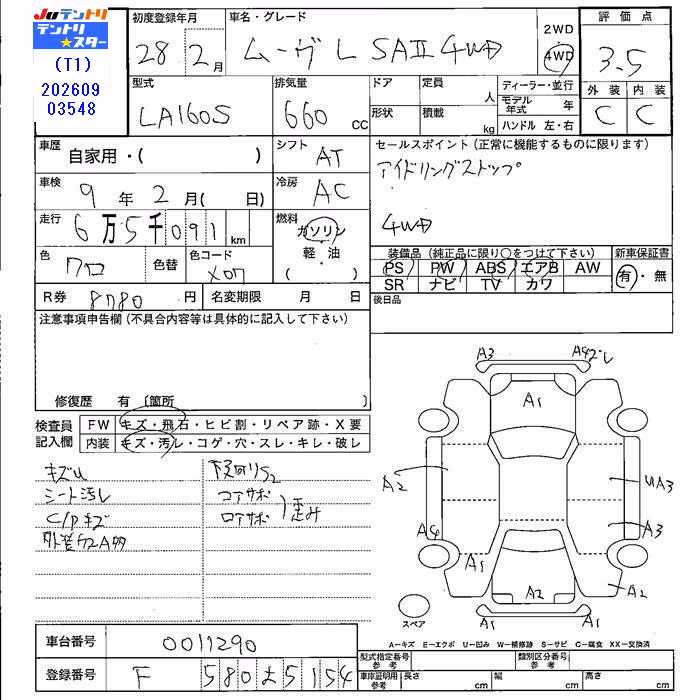 Juテントリ
テントリ★スター
(T1)
202609
03548
初度登録年月
28年 2月
車名・グレード
ムーヴ L SAⅡ 4WD
2WD
4WD
評価点
3.5
外装 内装
C C
型式
LA160S
排気量
660 cc
ドア
形状
定員 人
積載 kg
ディーラー・並行
モデル年式 年
ハンドル 左・右
車歴
自家用・( )
シフト
AT
セールスポイント(正常に機能するものに限ります)
アイドリングストップ
4WD
車検
9年 2月( 日)
冷房
AC
走行
6万5千091 km
燃料
ガソリン
軽・油
( )
色
クロ
色替
色コード
X07
装備品(純正品に限り○をつけて下さい)
PS PW ABS エアB AW
SR ナビ TV カワ
新車保証書
有・無
後日品
R券 8780円
名変期限 月 日
注意事項申告欄(不具合内容等は具体的に記入して下さい)
修復歴 有 〔箇所 〕
検査員記入欄
FW キズ・飛石・ヒビ割・リペア跡・X要
内装 キズ・汚レ・コゲ・穴・スレ・キレ・破レ
キズU
シート汚レ
C/Pキズ
下廻りS2
コアサポ
ロアサポ
歪み
A3
A1
A2
UA3
A4
A3
A1
A2
A2
A1
A1
スペア
A-キズ E-エクボ U-凹み W-補修跡 S-サビ C-腐食 XX-交換済
車台番号
0011290
登録番号
F 580 5154
型式指定番号 参考
類別区分番号 参考
車庫証明用 参考
長さ cm
幅 cm
高さ cm